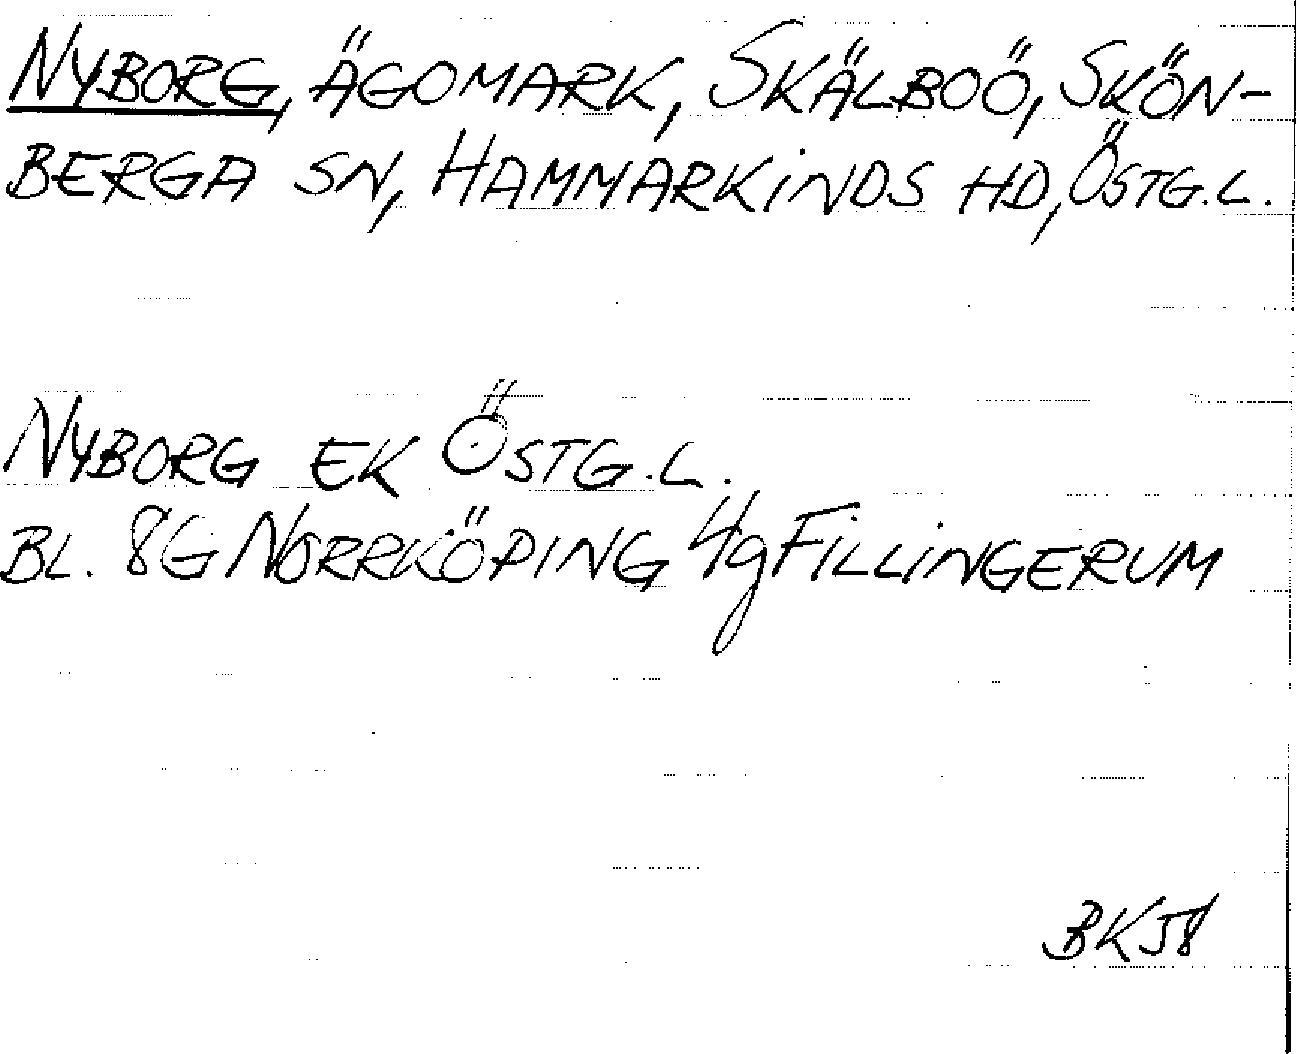 NYBORG, ÄGOMARK, SKÄLBOÖ, SKÖN-
BERGA SN, HAMMARKINDS HD, ÖSTG.L.
NYBORG EK ÖSTG.L.
BL. 8G NORRKÖPING 4g FILLINGERUM
BK58